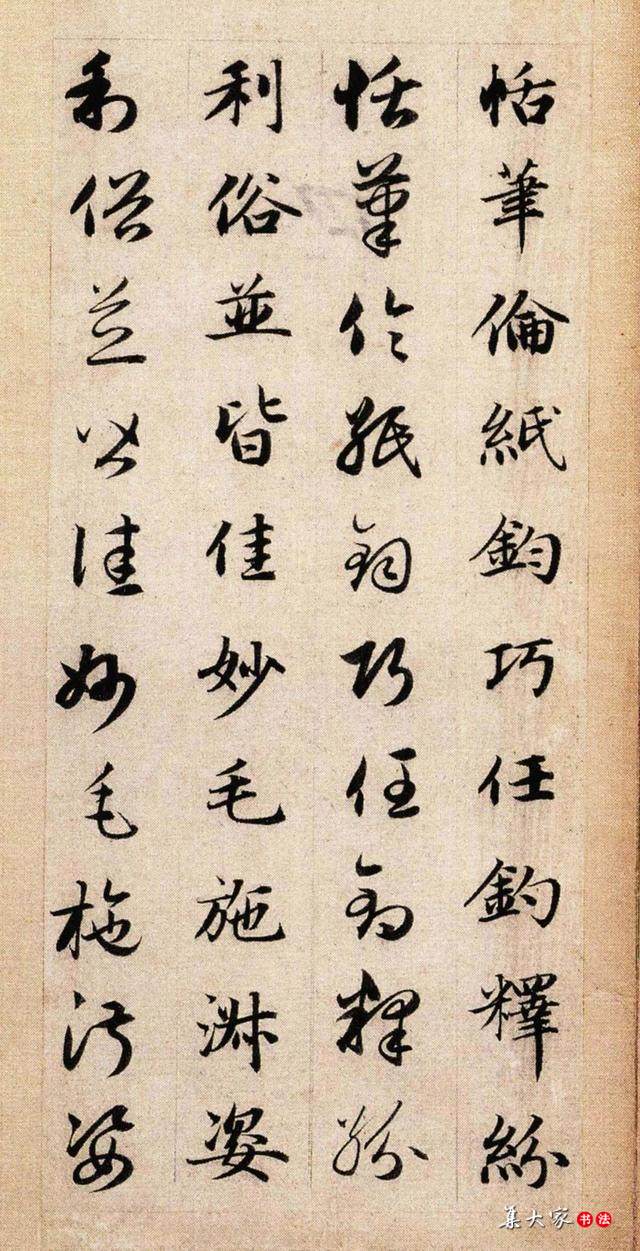 恬筆倫紙鈞巧任釣釋紛
恬筆倫紙鈞巧任釣釋紛
利俗並皆佳妙毛施淑姿
利俗並皆佳妙毛施淑姿
集大家书法